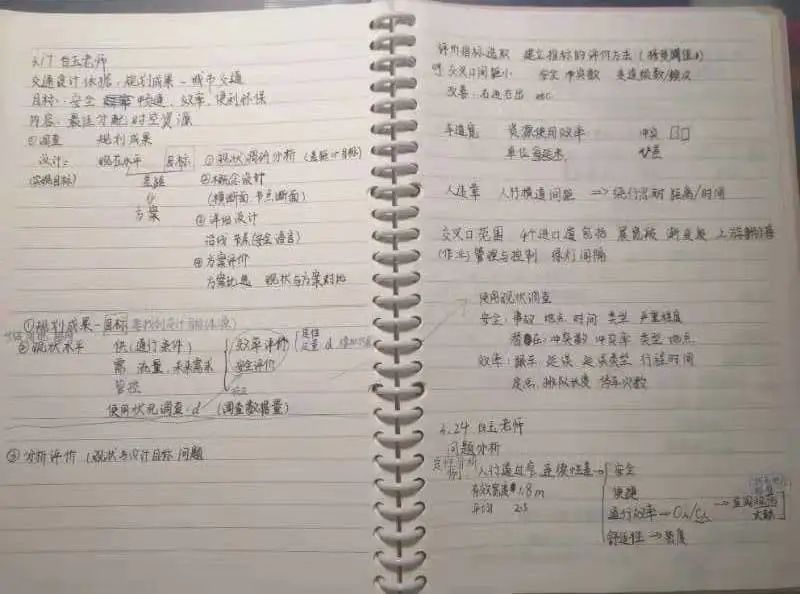 3.17 白玉老师
交通设计 依据：规划成果 - 城市交通
目标：安全 畅通、效率、便利环保
内容：最佳分配时空资源
①调查 规划成果
设计： 现状水平 目标 ①现状调研分析（差距→目标）
(实现目标) 差距 ②概念设计
方案 (横断面 节点断面)
③详细设计
沿线 节点(安全语言)
④方案评价
方案比选 现状与方案对比
①规划成果 - 目标
②现状水平 供（通行条件） 效率评价 定性 定量
需 流量、未来需求 安全评价
管控
使用状况调查：d （调查数据量）
③分析评价（现状与设计目标 问题
评价指标选取 建立指标的评价方法（
交叉口间距小 安全 冲突数 变道次数/频次
改善：右进右出 etc
车道宽 资源使用效率 冲突
单位宽度
人过章 人行横道间距 => 绕行 距离/时间
交叉口范围 4个进口道 包括 展宽段 渐变段 上游
管理与控制 绿灯间隔
使用现状调查
安全：事故 地点 时间 类型 严重程度
潜在：冲突数 冲突率 类型 地点
效率： 延误 延误类型 行程时间
定点：排队长度 停车次数
3.24 白玉老师
问题分析
人行道过窄，连续性差→ 安全
有效宽度 1.8m 便捷
2.5 通行效率→
舒适性→宽度